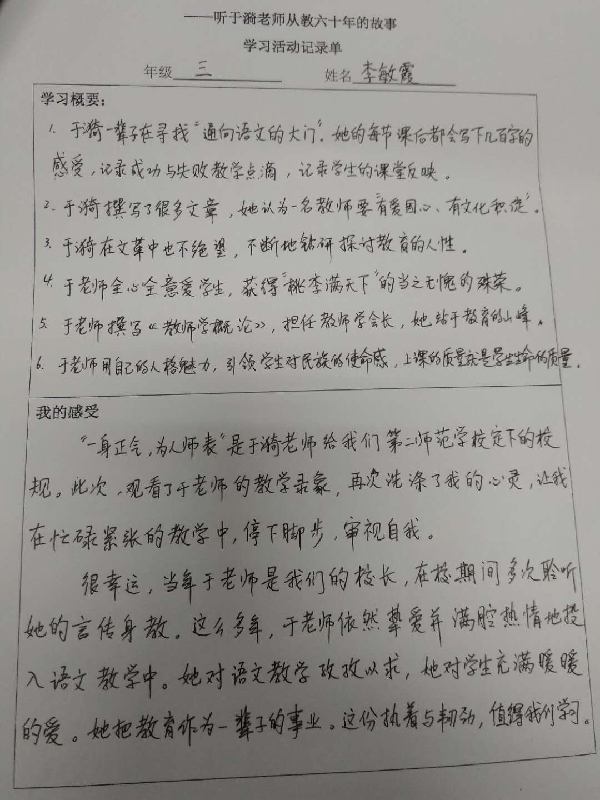 ——听于漪老师从教六十年的故事
学习活动记录单
年级 三 姓名 李敏霞
学习概要：
1. 于漪一辈子在寻找“通向语文的大门”。她的每节课后都会写下几百字的
感受，记录成功与失败教学点滴，记录学生的课堂反映。
2. 于漪撰写了很多文章，她认为一名教师要“有爱国心、有文化积淀”。
3. 于漪在文革中也不绝望，不断地钻研探讨教育的人性。
4. 于老师全心全意爱学生，获得“桃李满天下”的当之无愧的殊荣。
5. 于老师撰写《教师学概论》，担任教师学会长，她站于教育的山峰。
6. 于老师用自己的人格魅力，引领学生对民族的使命感，上课的质量就是学生生命的质量。
我的感受
“一身正气，为人师表”是于漪老师给我们第二师范学校定下的校
规。此次，观看了于老师的教学录象，再次洗涤了我的心灵，让我
在忙碌紧张的教学中，停下脚步，审视自我。
很幸运，当年于老师是我们的校长，在校期间多次聆听
她的言传身教。这么多年，于老师依然挚爱并满腔热情地投
入语文教学中。她对语文教学孜孜以求，她对学生充满暖暖
的爱。她把教育作为一辈子的事业。这份执着与韧劲，值得我们学习。